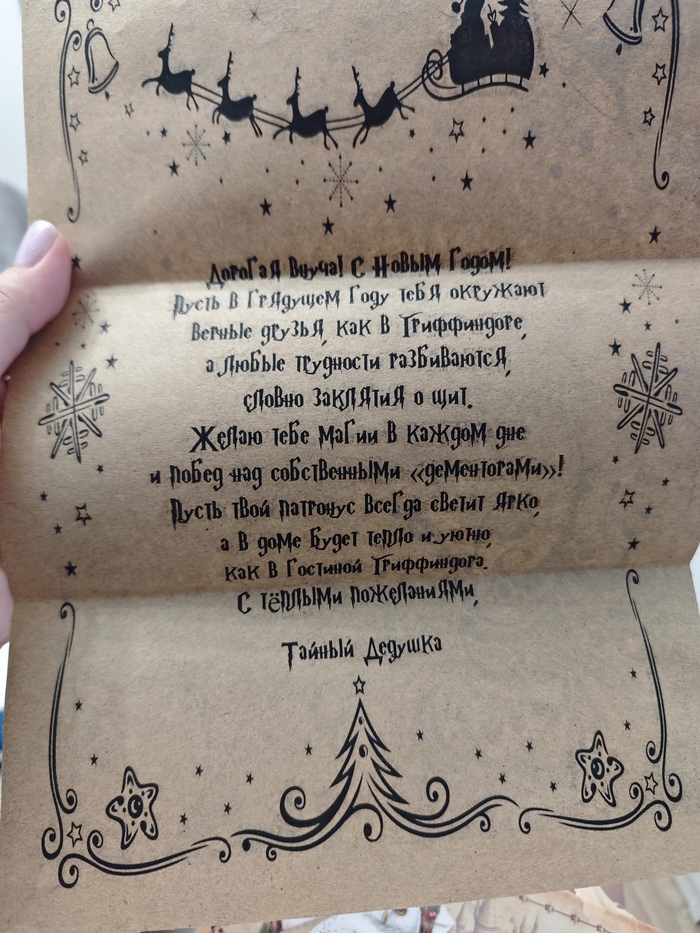 Дорогая Внуча! С Новым Годом!
Пусть в грядущем году тебя окружают
верные друзья, как в Гриффиндоре,
а любые трудности разбиваются,
словно заклятия о щит.
Желаю тебе магии в каждом дне
и побед над собственными «дементорами»!
Пусть твой патронус всегда светит ярко,
а в доме будет тепло и уютно,
как в гостиной Гриффиндора.
С тёплыми пожеланиями,
Тайный Дедушка